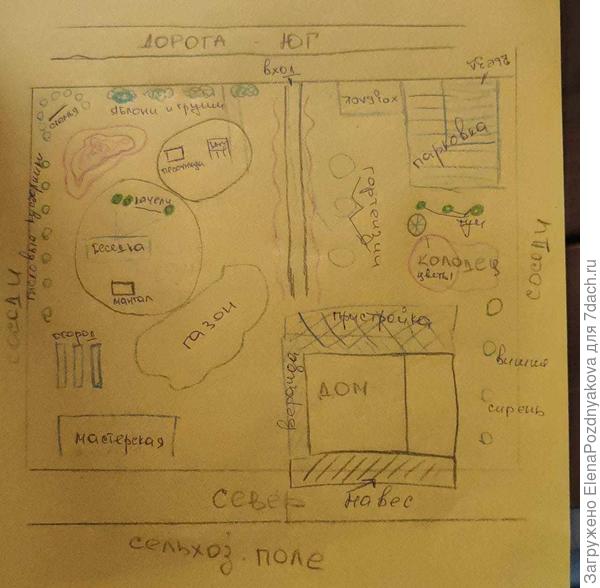 ДОРОГА - ЮГ
ВХОД
ВЪЕЗД
ЯБЛОНИ и ГРУШИ
ХОЗБЛОК
ПАРКОВКА
песочница
качели
беседка
мангал
ГОРТЕНЗИИ
КОЛОДЕЦ
цветы
СОСЕДИ
СОСЕДИ
газон
огород
пристройка
веранда
ДОМ
вишня
сирень
мастерская
СЕВЕР
Навес
сельхоз. поле
Загружено ElenaPozdnyakova для 7dach.ru